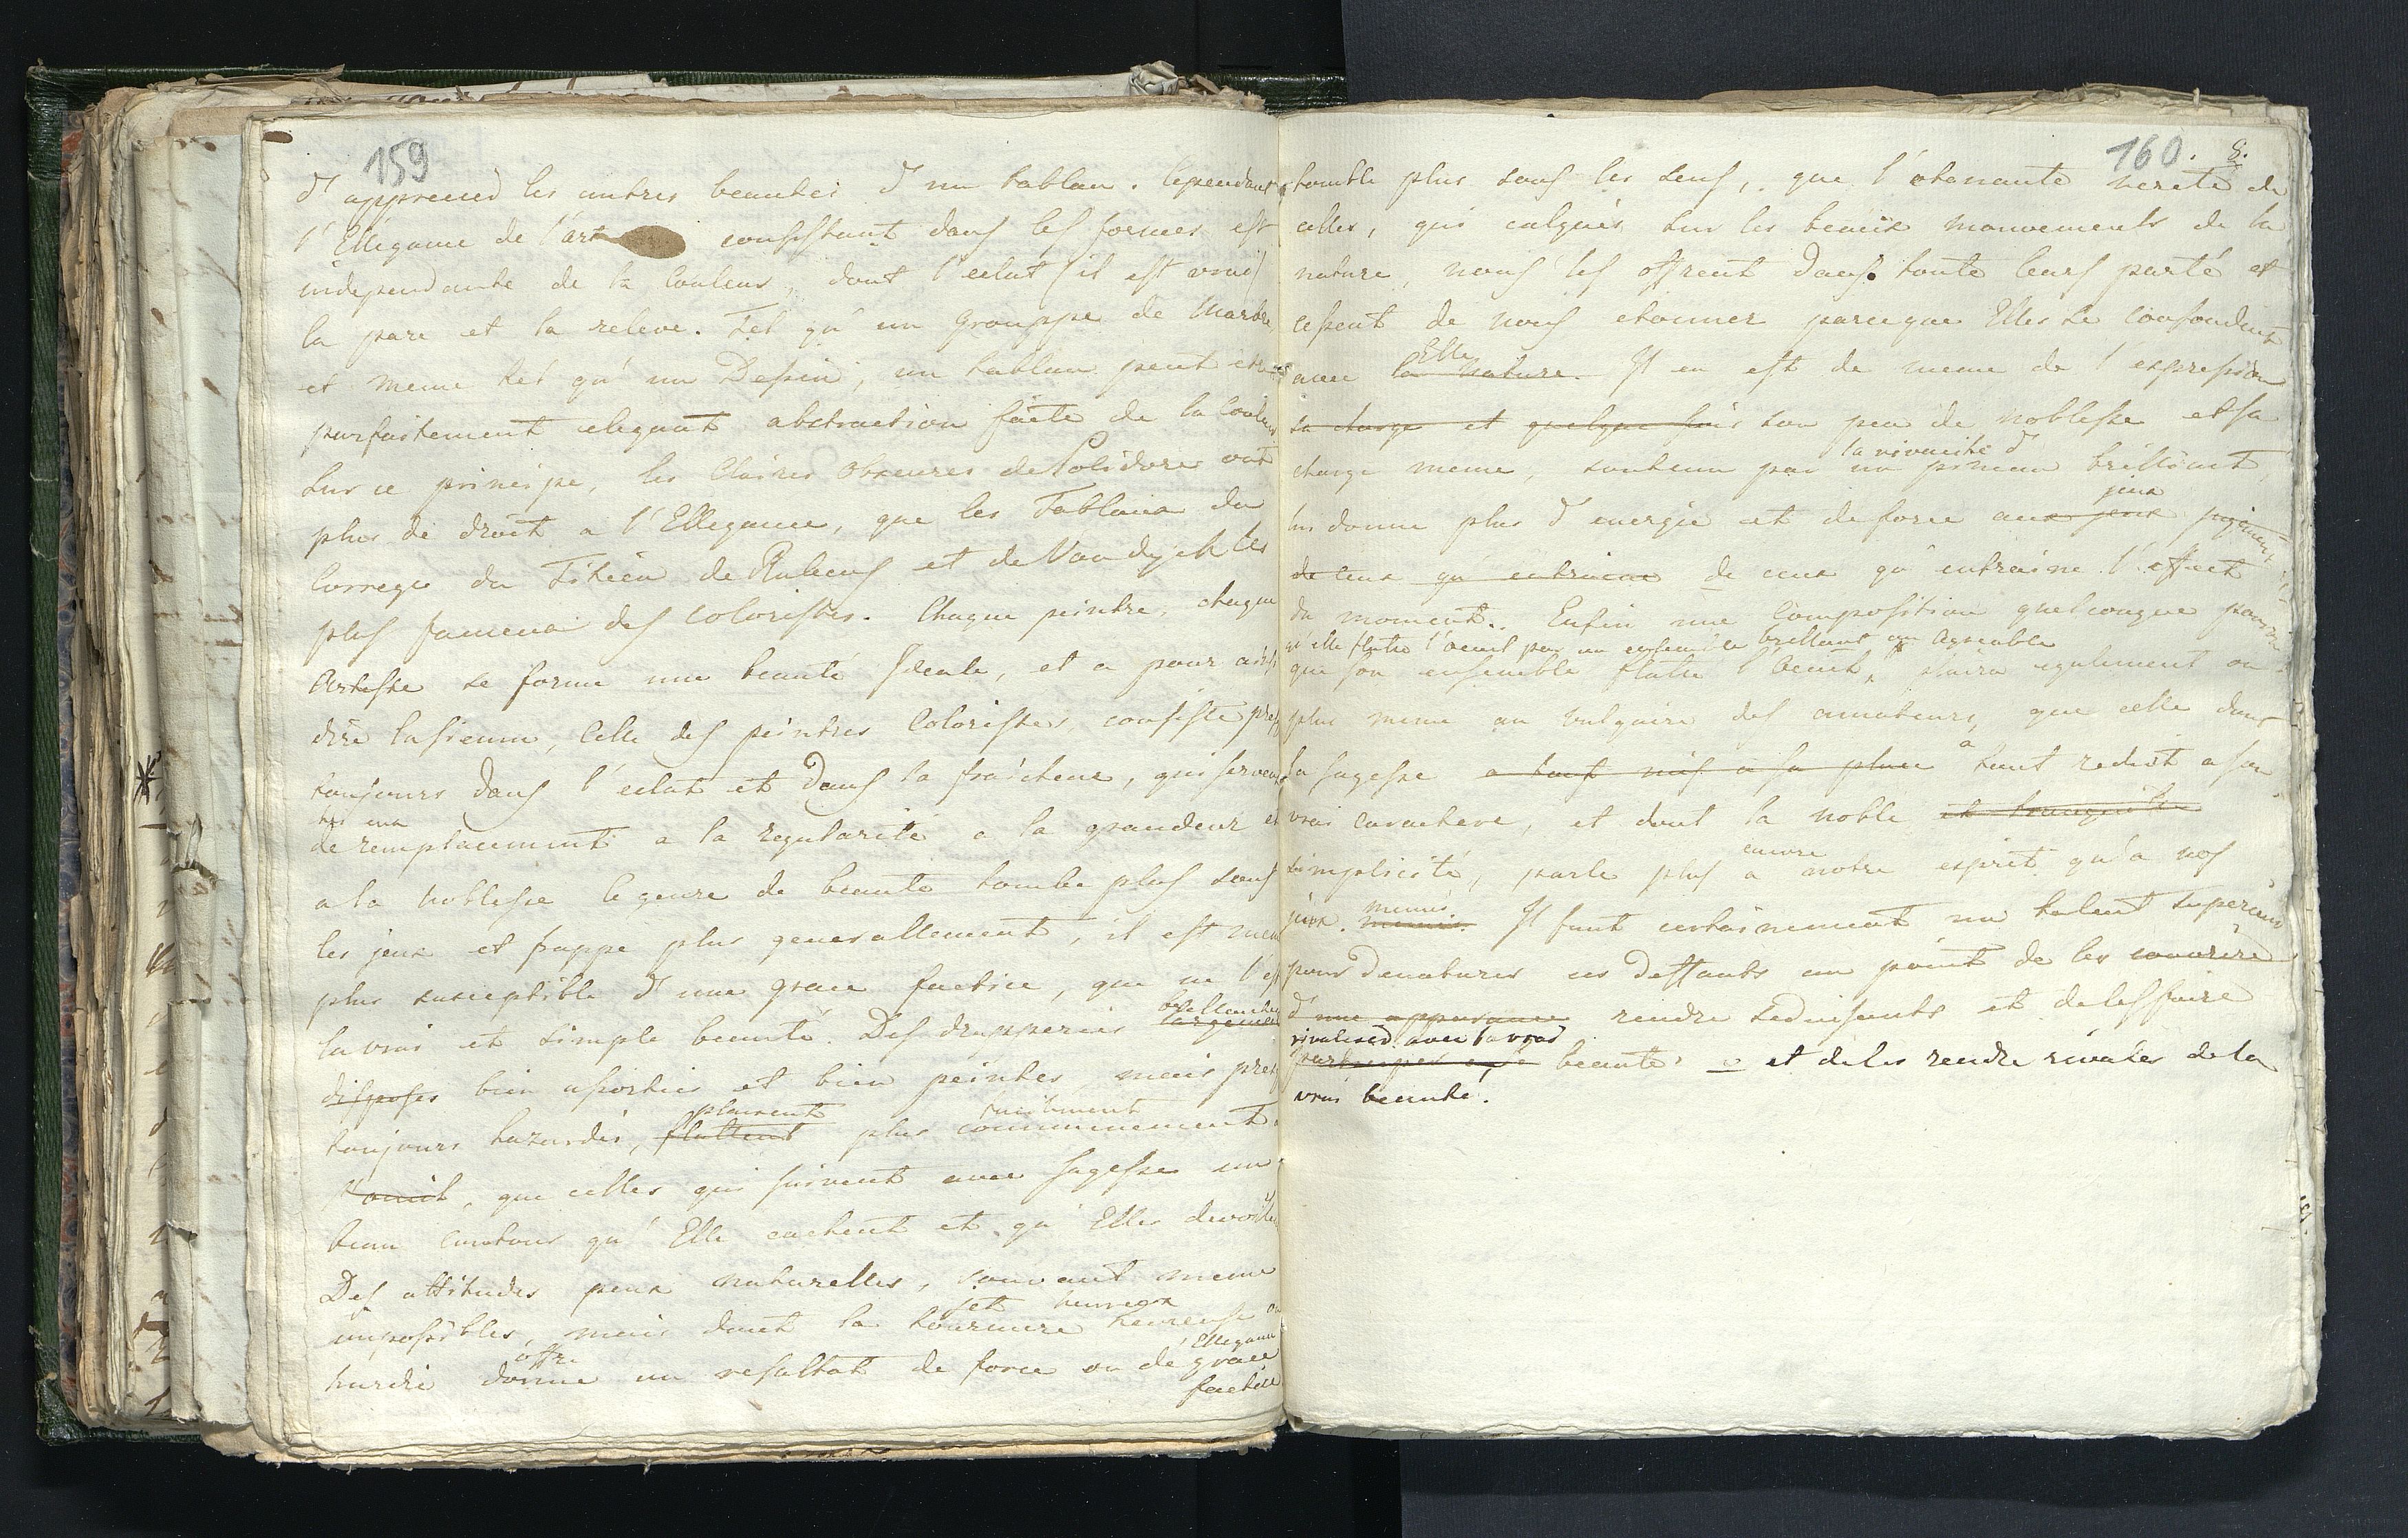 159
d'apprecier les autres beautés d'un tablau. Cependant
l'Ellegance de l'art consistant dans les formes est
independante de la Couleur, dont l'eclat (il est vrai)
la pare et la releve. Tel qu'un Grouppe de Marbre
et meme tel qu'un Dessin, un tablau peut etre
parfaitement elegant abstraction faite de la Couleur
sur ce principe, les Claires Obscures de Polidore ont
plus de droit a l'Ellegance, que les Tablaux du
Correge du Titien de Rubens et de Van dyck les
plus fameux des Coloristes. Chaque peintre, chaque
Artiste se forme une beauté Ideale, et a pour ainsi
dire la sienne, Celle des peintres Coloristes, consiste presq
toujours dans l'eclat et dans la fraicheur, qui servent
de remplacement a la regularité a la grandeur et
a la noblesse le genre de beauté tombe plus sous
les jeux et frappe plus generallement, il est meme
plus susceptible d'une grace factice, que ne l'est
la vrai et simple beauté. Des drapperies largement
disposes bien assorties et bien peintes mais presq
plaisent facilment
toujours hazardés, flattent plus communement
l'oeuil, que celles qui suivent avec sagesse un
beau contour qu'Elle cachent et qu'Elles devoilent
Des attitudes peux naturelles, souvant meme
jet heureux
impossibles, mais dont la tournure heureuse ou
offre Ellegance
hardie donne un resultat de force ou de grace
factice
160. 8.
tombe plus sous les sens, que l'etonante verité de
celles, qui calqués sur les beaux mouvements de la
nature, nous les offrent dans toute leurs purté et
cessent de nous etonner parceque Elles se confondent
Elle
avec la Nature. Il en est de meme de l'expression
sa charge et quelque fois son peu de noblesse et sa
la vivacité d'
charge meme, soutenu par un pinceau brilliant,
jeux
lui donne plus d'energie et de force aux jeux
de ceux qu'entraine de ceux qu'entraine l'effect
du moment. Enfin une Composition quelconque pourvu
qu'elle flatte l'oeuil par un ensemble brillant ou Agreable
que son ensemble flatte l'Oeuil, plaira egalement ou
plus meme au vulgaire des amateurs, que celle dont
la sagesse a tout mis a sa place a tout reduit a son
vrai Caractere, et dont la noble et tranquile
encore
simplicité, parle plus a notre esprit qu'a nos
jeux. memes Il faut certainement un talent superieur
pour denaturer ces deffauts au point de les couvrire
d'une apparance rendre seduisants et de les faire
rivaliser avec la vrai
beauté et de les rendre rivales de la
vrai beauté.